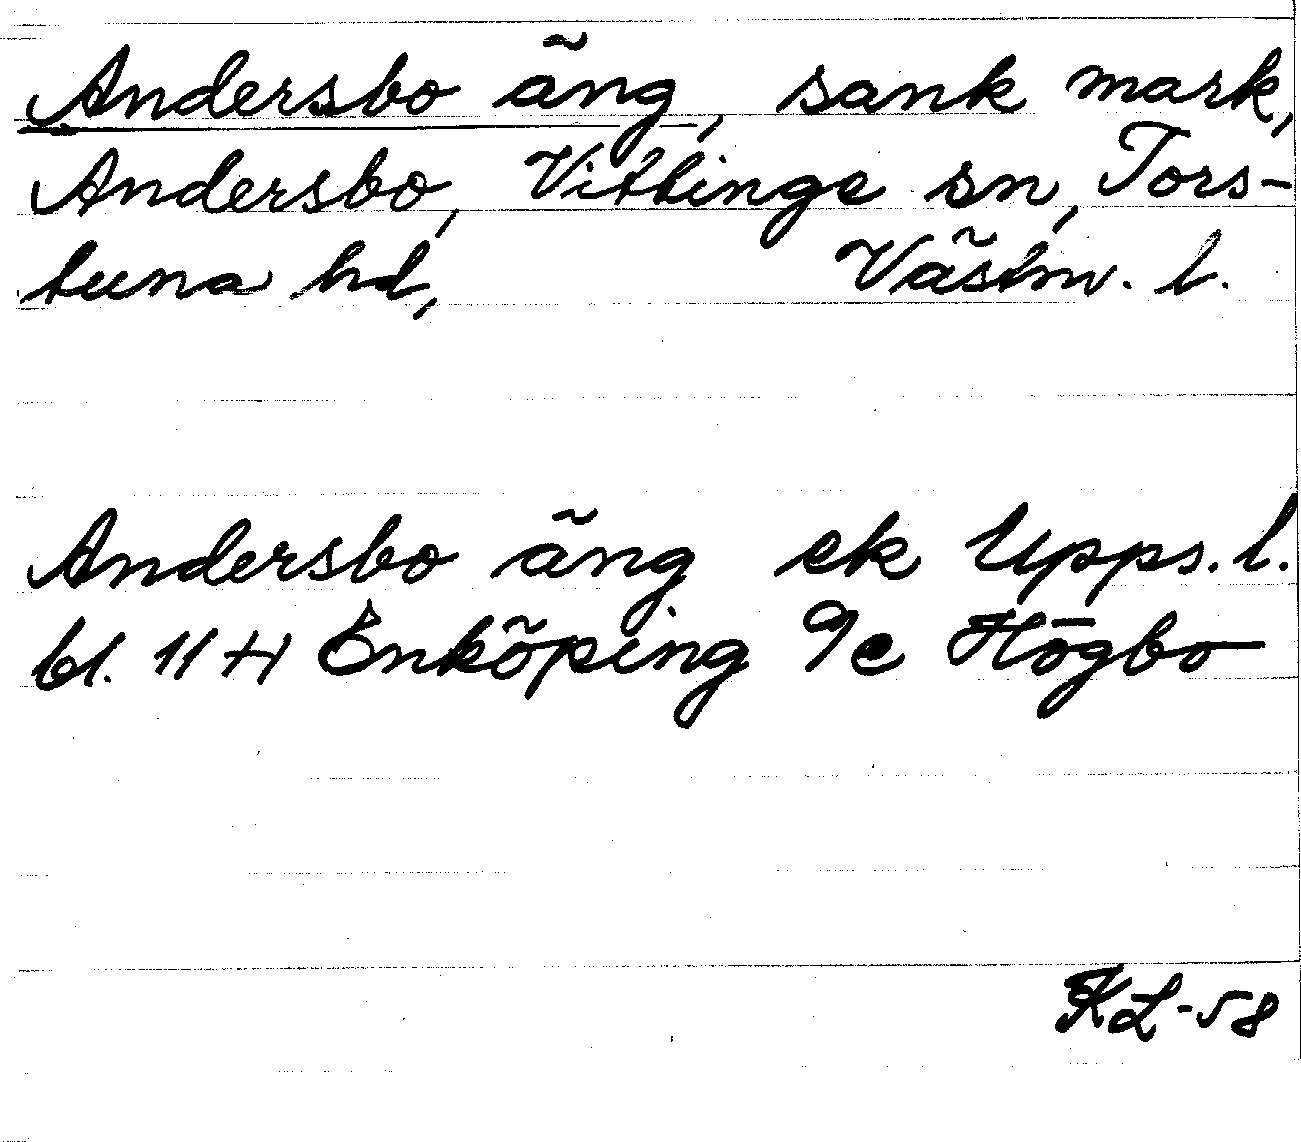 Andersbo äng, sank mark,
Andersbo, Vittinge sn, Tors-
tuna hd, Västm. l.
Andersbo äng ek Upps. l.
bl. 11 H Enköping 9e Högbo
KL-58